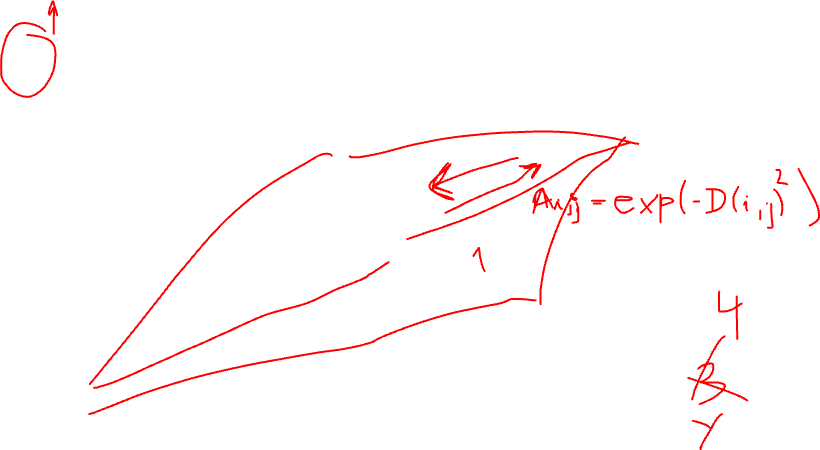 A_{i,j} = exp(-D(i,j)^2)
1
4
B
Y